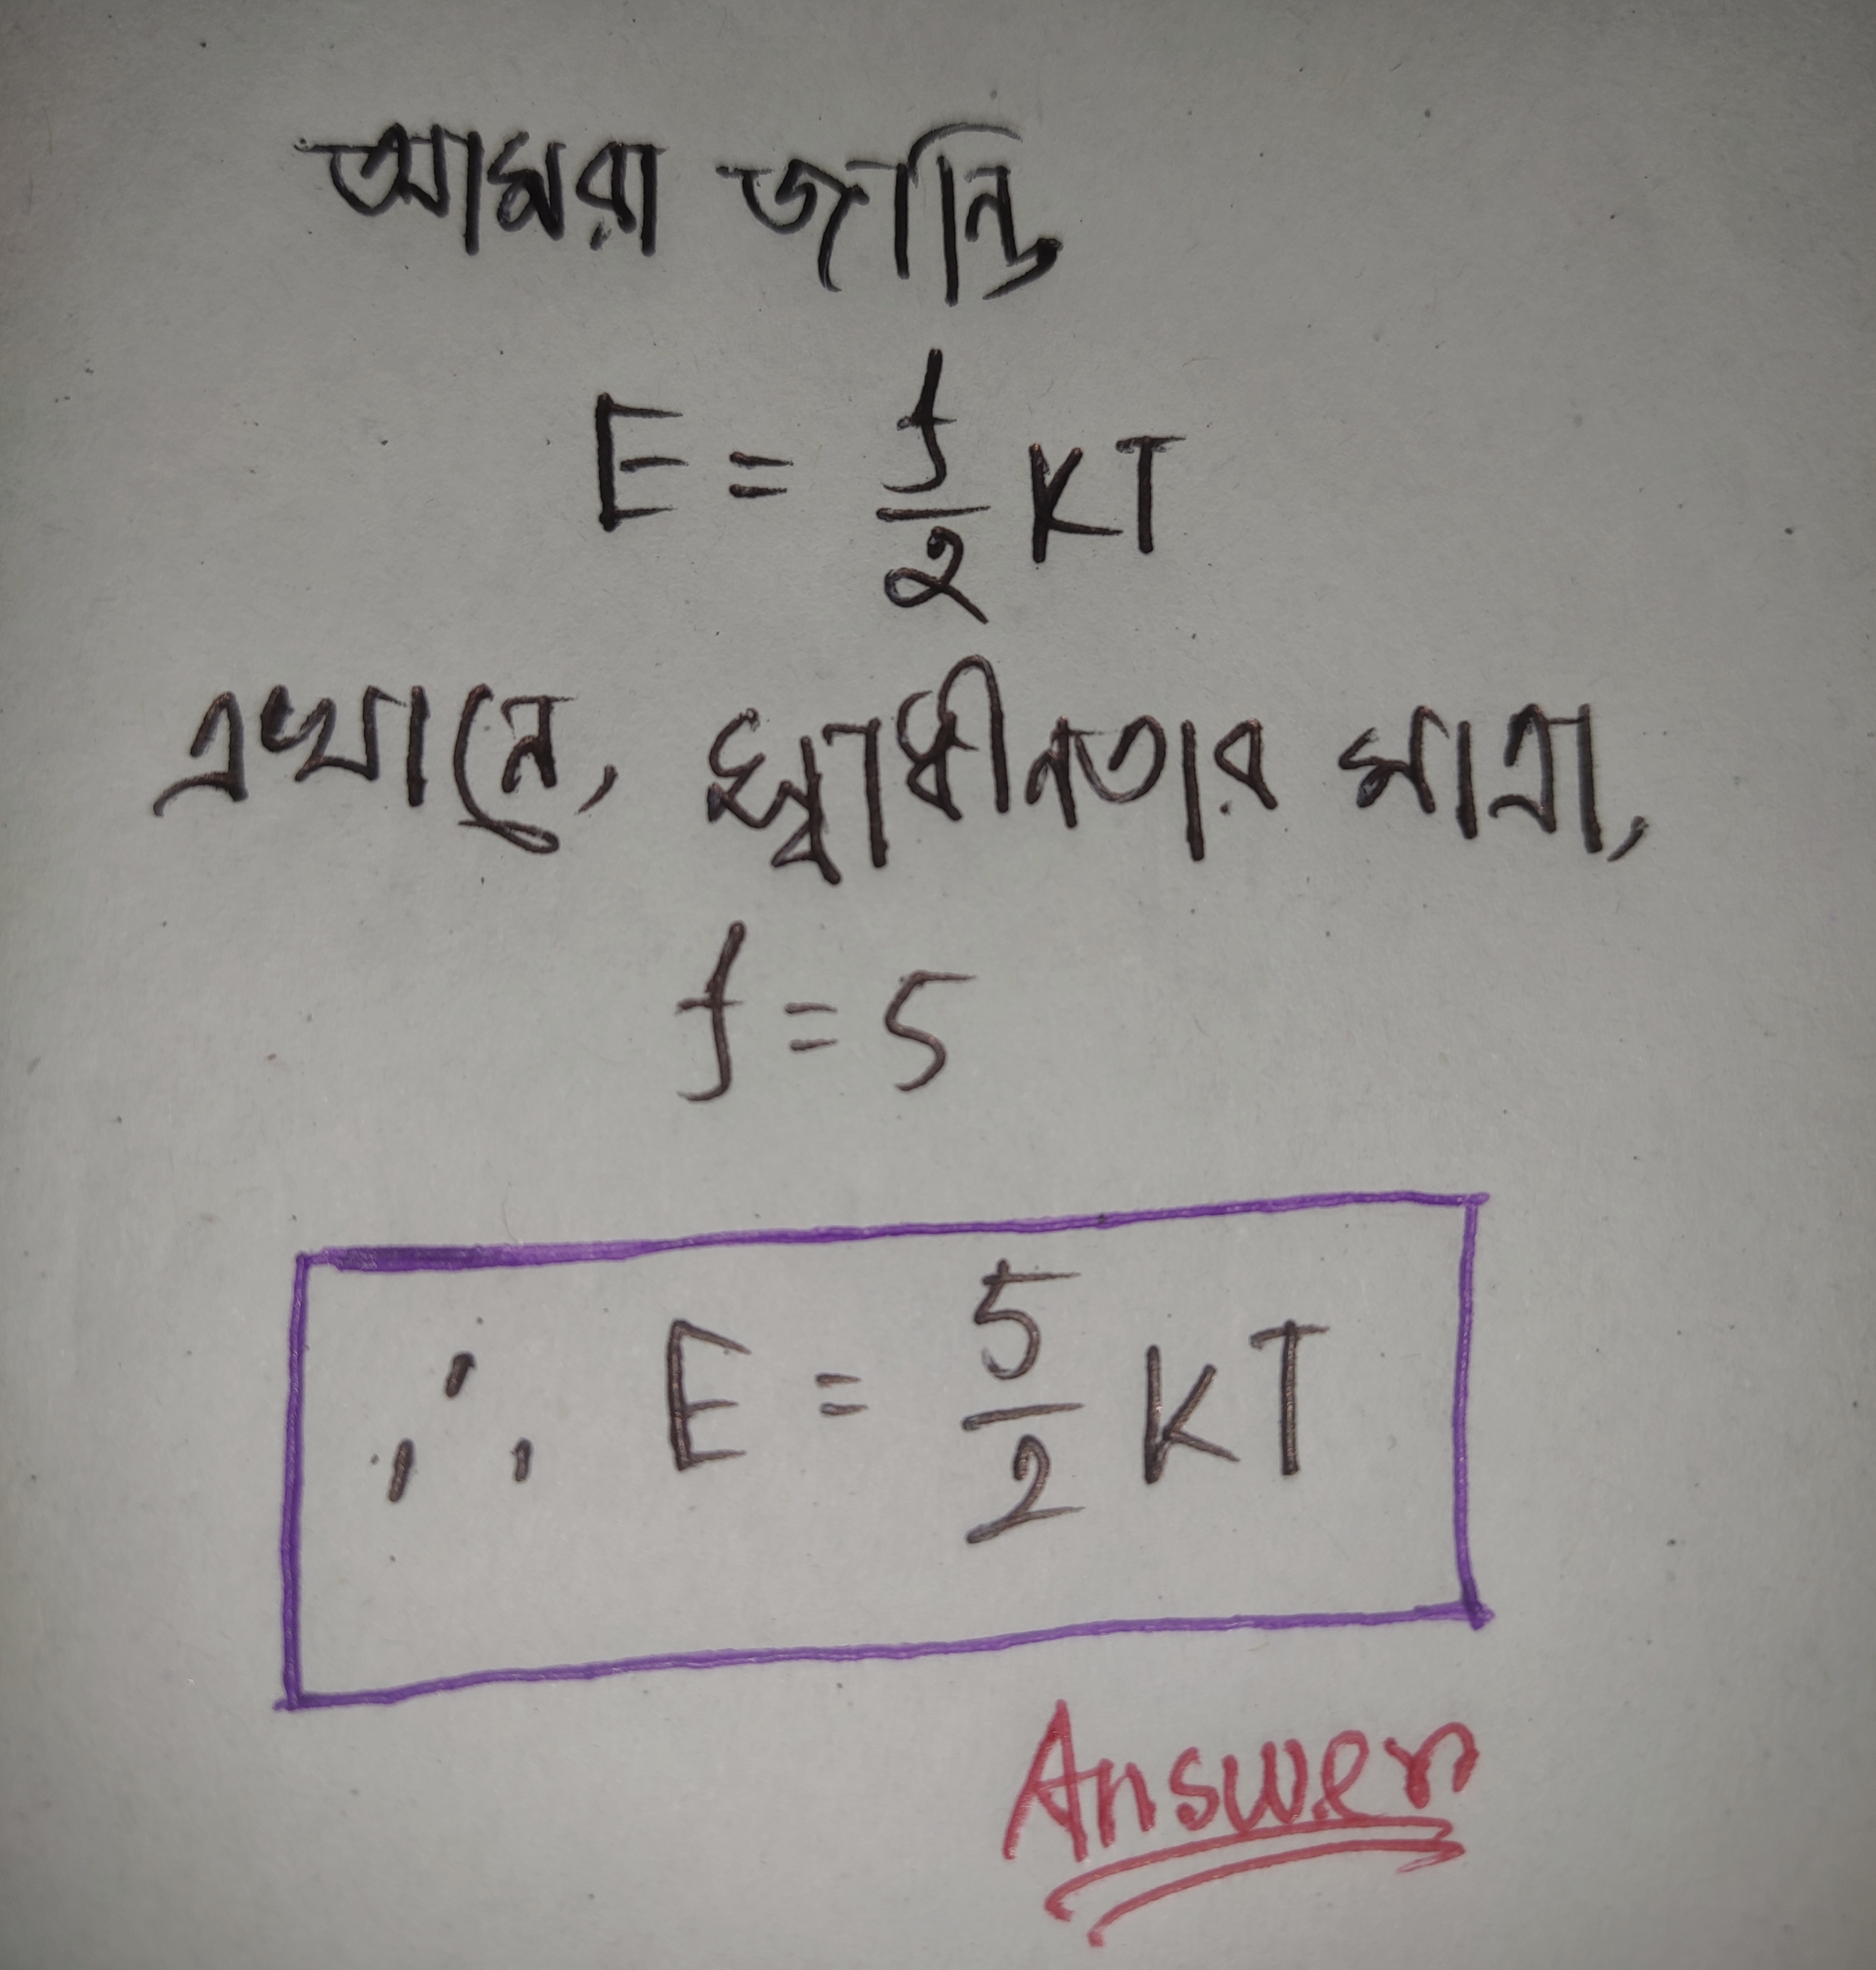 আমরা জানি,
E = f/2 KT
এখানে, স্বাধীনতার মাত্রা,
f = 5
∴ E = 5/2 KT
Answer